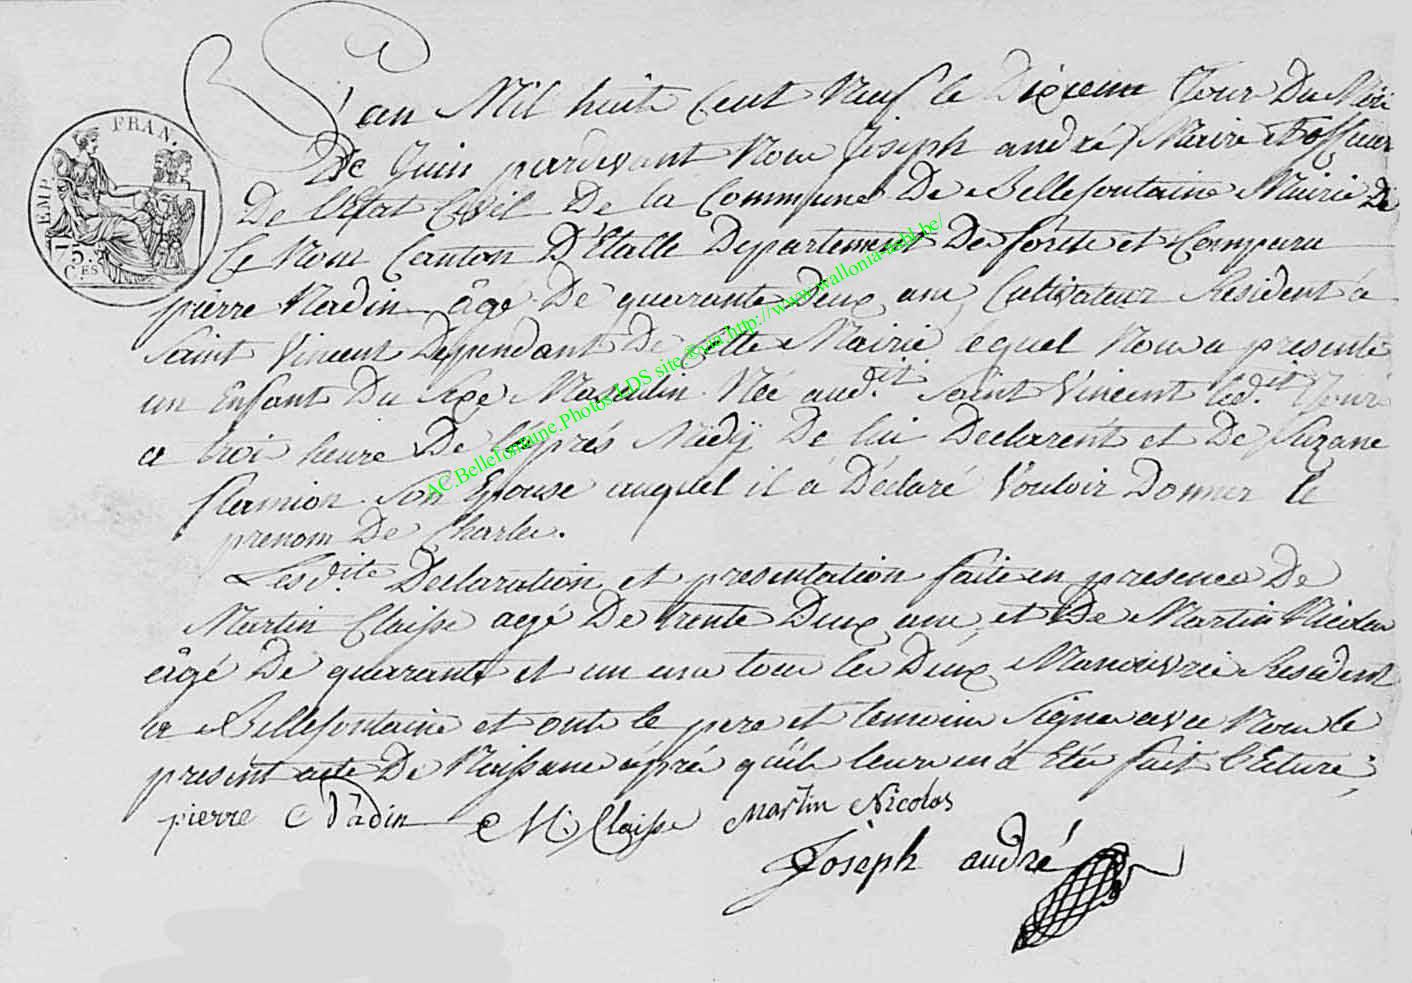 L'an Mil huit Cent Neuf le Dixieme Jour Du Moi
De Juin pardevant Nous Joseph andré Maire Et officier
De l'Etat Civil De la Commune De Bellefontaine Mairie De
Ce Nom Canton D'Etalle Departement De forets et Comparu
pierre Nadin âgé De quarante Deux ans Cultivateur Resident à
Saint Vincent Dependant De Cette Mairie lequel Nous a presenté
un Enfant Du Sexe Masculin Né aud.it Saint Vincent led.it Jour
a troi heure De l'après Midÿ De lui Declarent et De Suzane
Son Epouse auquel il à Déclaré Vouloir Donner le
prenom De Charles.
Lesd.ite Declaration et presentation faite en presence De
Martin Claisse agé De trente Deux ans et De Martin Nicolas
âgé De quarante et un ans tous les Deux Manouvrie Resident
a Bellefontaine et ont le pere et temoin Signe avec Nous le
present acte De Naissance après qu'il leur en à Eté fait lecture,
pierre Nâdin M. Claisse Martin Nicolas
Joséph andré
EMP. FRAN.
75.
C.ES
AC.Bellefontaine.Photos LDS site © via http://www.wallonia-asbl.be/